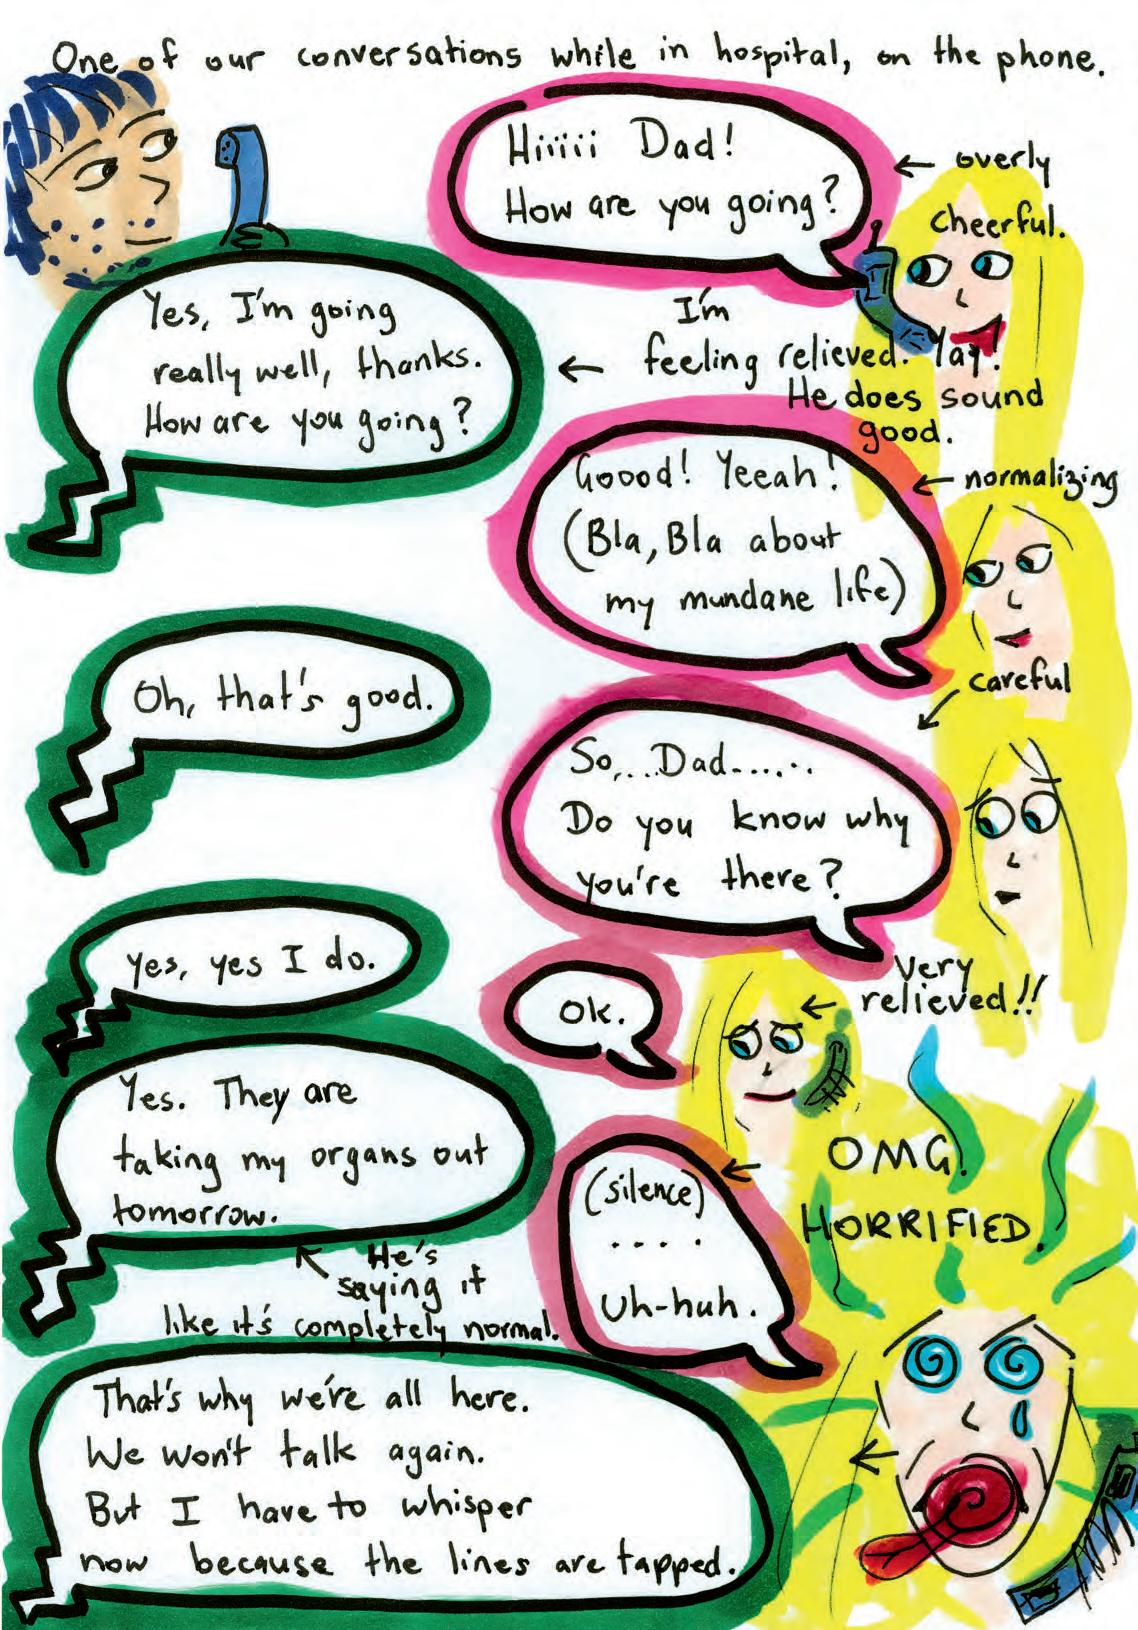 One of our conversations while in hospital, on the phone.
Hiiiii Dad!
How are you going?
← overly
cheerful.
Yes, I'm going
really well, thanks.
How are you going?
I'm
← feeling relieved. Yay!
He does sound
good.
Goood! Yeeah!
(Bla, Bla about
my mundane life)
← normalizing
Oh, that's good.
careful
So....Dad......
Do you know why
you're there?
yes, yes I do.
Ok.
Very
← relieved!!
Yes. They are
taking my organs out
tomorrow.
He's
saying it
like it's completely normal.
(silence)
....
Uh-huh.
OMG!
HORRIFIED.
That's why we're all here.
We won't talk again.
But I have to whisper
now because the lines are tapped.